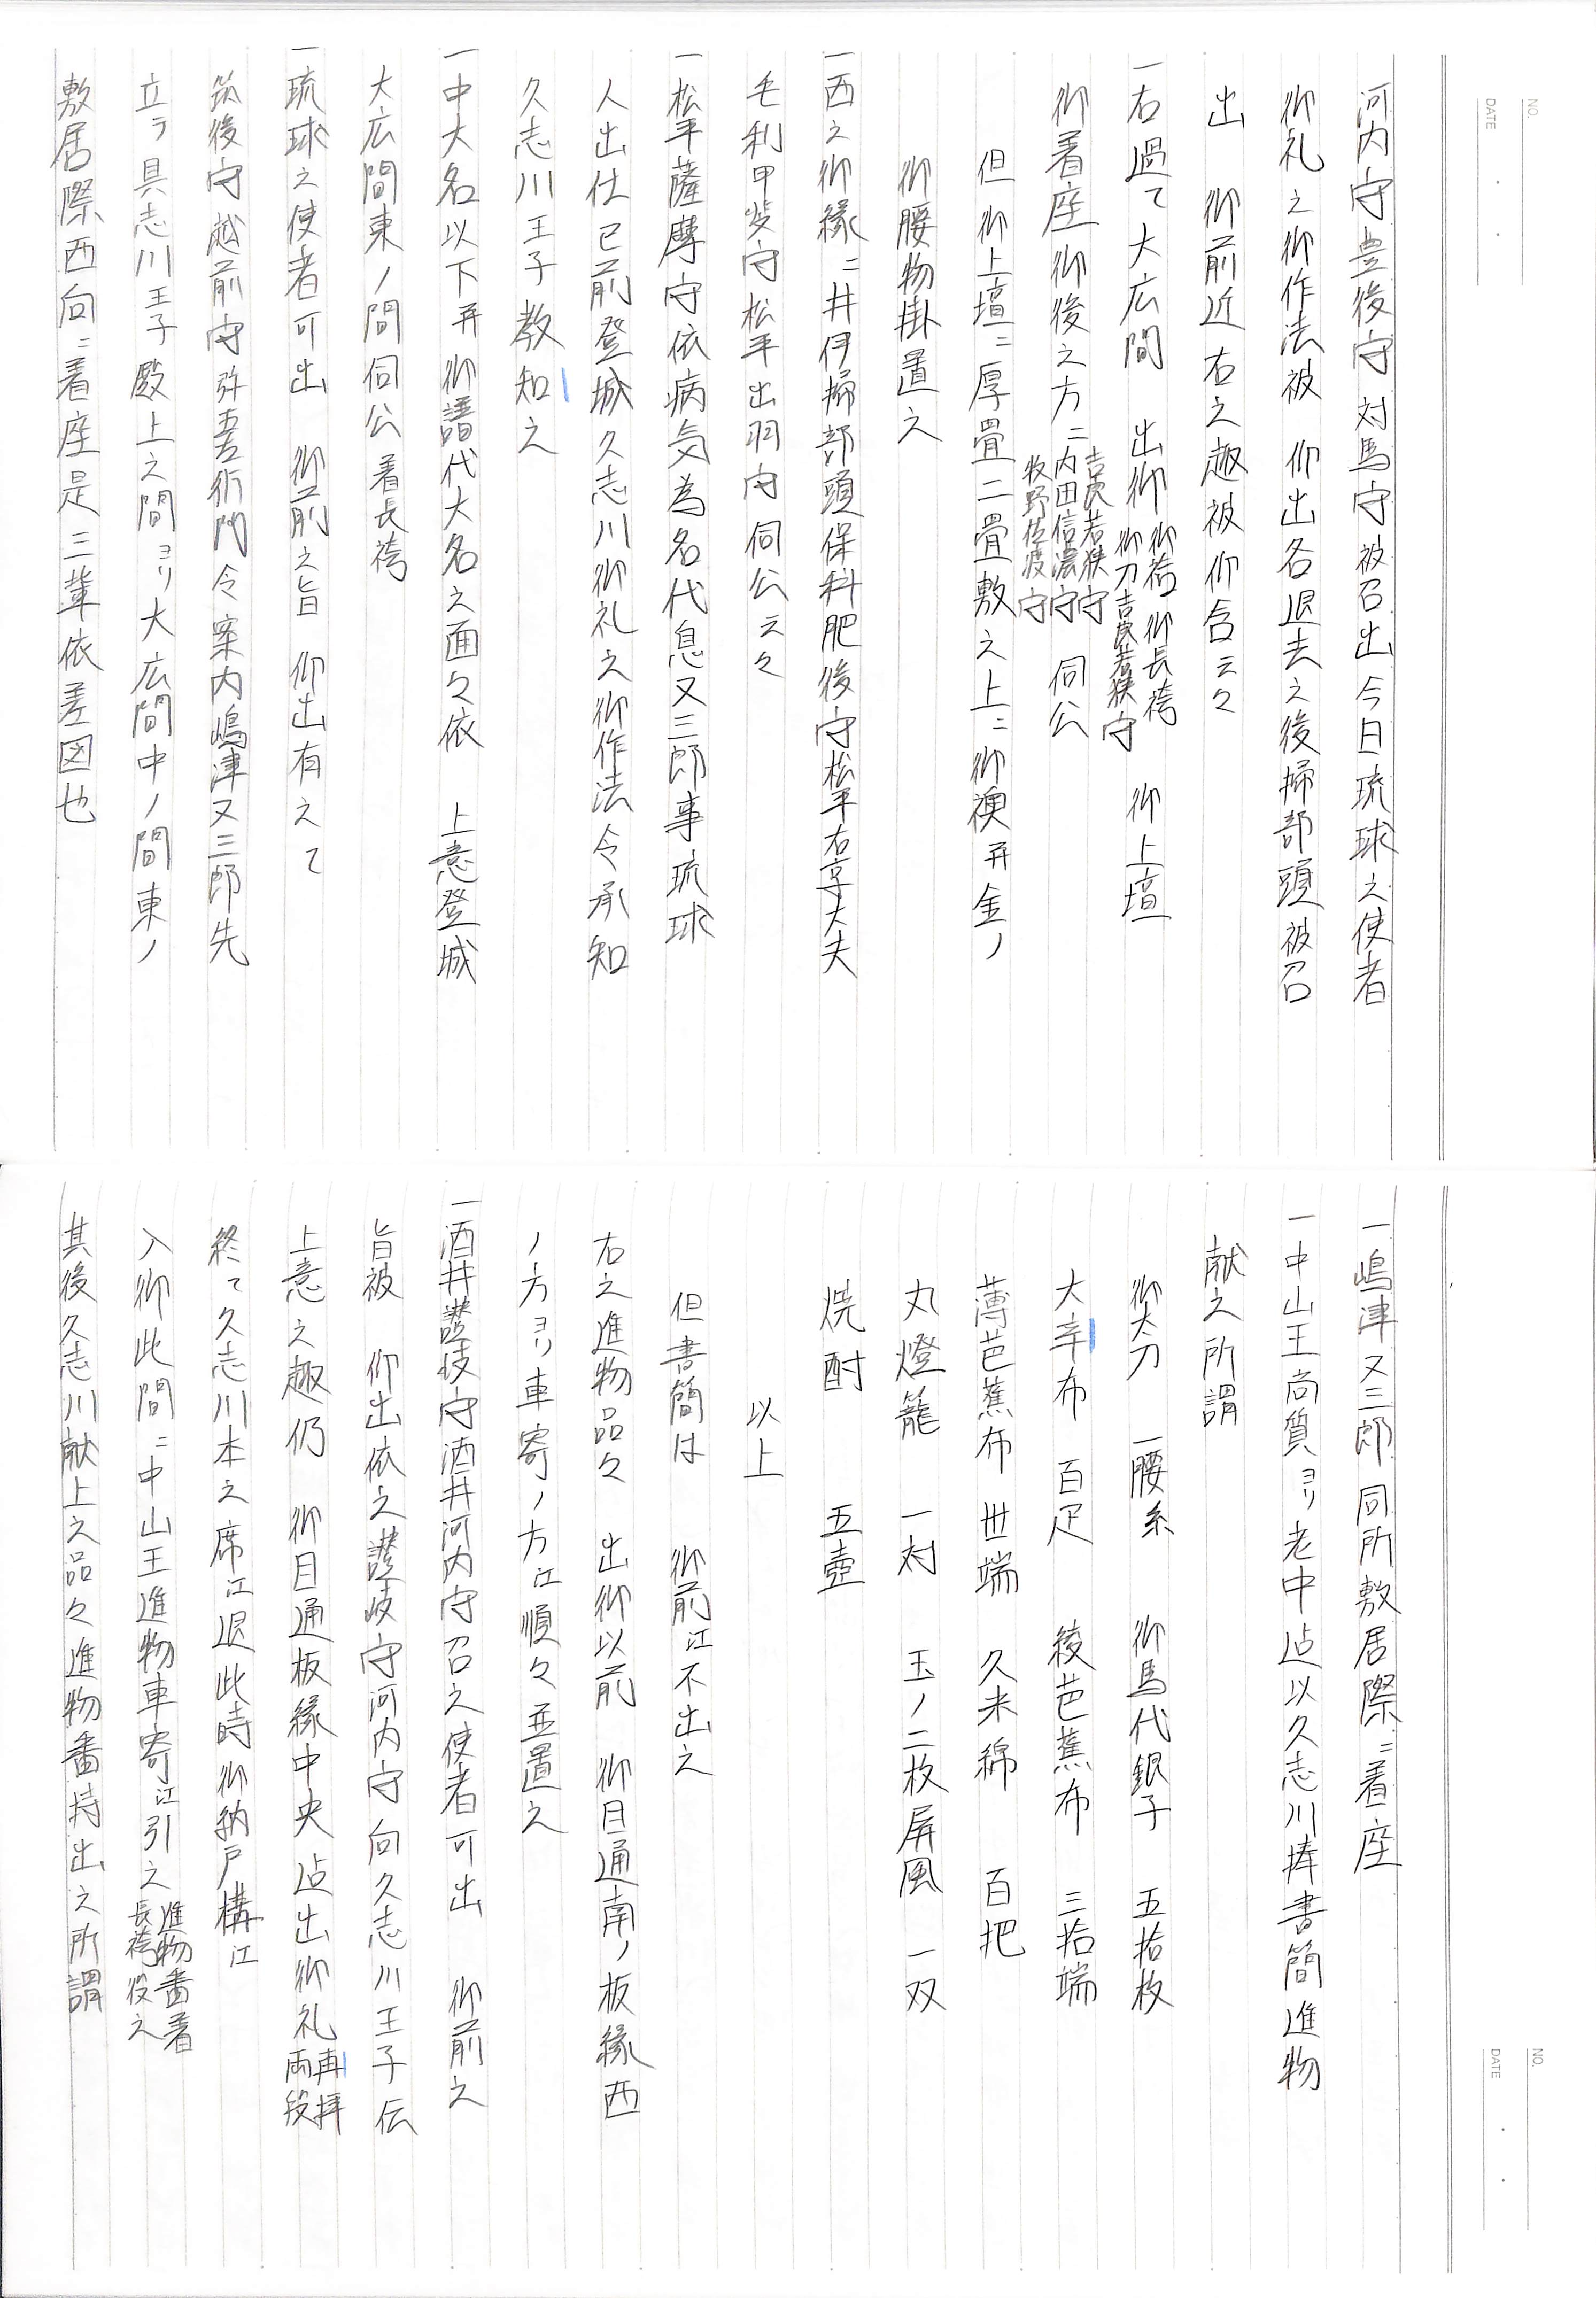 NO.
DATE
河内守豊後守対馬守被召出今日琉球之使者
御礼之御作法被 仰出各退去之後掃部頭被召
出 御前近右之趣被仰含云々
一右過て大広間 出御 御袷御長袴 御刀吉良若狭守 御上壇
御着座御後之方ニ 吉良若狭守 内田信濃守 牧野佐渡守 伺公
但御上壇ニ厚畳二畳敷之上ニ御褥并金ノ
御腰物掛置之
一西之御縁ニ井伊掃部頭保科肥後守松平右京大夫
毛利甲斐守松平出羽守伺公云々
一松平薩摩守依病気為名代息又三郎事琉球
人出仕已前登城久志川御礼之御作法令承知
久志川王子教知之
一中大名以下并御譜代大名之面々依 上意登城
大広間東ノ間伺公着長袴
一琉球之使者可出 御前之旨 仰出有之て
筑後守越前守弥吾衛門令案内嶋津又三郎先
立ヲ具志川王子殿上之間ヨリ大広間中ノ間東ノ
敷居際西向ニ着座是三輩依差図也
NO.
DATE
一嶋津又三郎同所敷居際ニ着座
一中山王尚質ヨリ老中迠以久志川捧書簡進物
献之所謂
御太刀 一腰糸 御馬代銀子 五拾枚
大辛布 百疋 綾芭蕉布 三拾端
薄芭蕉布 丗端 久米綿 百把
丸燈籠 一対 玉ノ二枚屏風 一双
焼酎 五壺
以上
但書簡は 御前江不出之
右之進物品々 出御以前 御目通南ノ板縁西
ノ方ヨリ車寄ノ方江順々並置之
一酒井讃岐守酒井河内守召之使者可出 御前之
旨被 仰出依之讃岐守河内守向久志川王子伝
上意之趣仍 御目通板縁中央迠出御礼 再拝両段
終て久志川本之席江退此時御納戸構江
入御此間ニ中山王進物車寄江引之 進物番着長袴役之
其後久志川献上之品々進物番持出之所謂